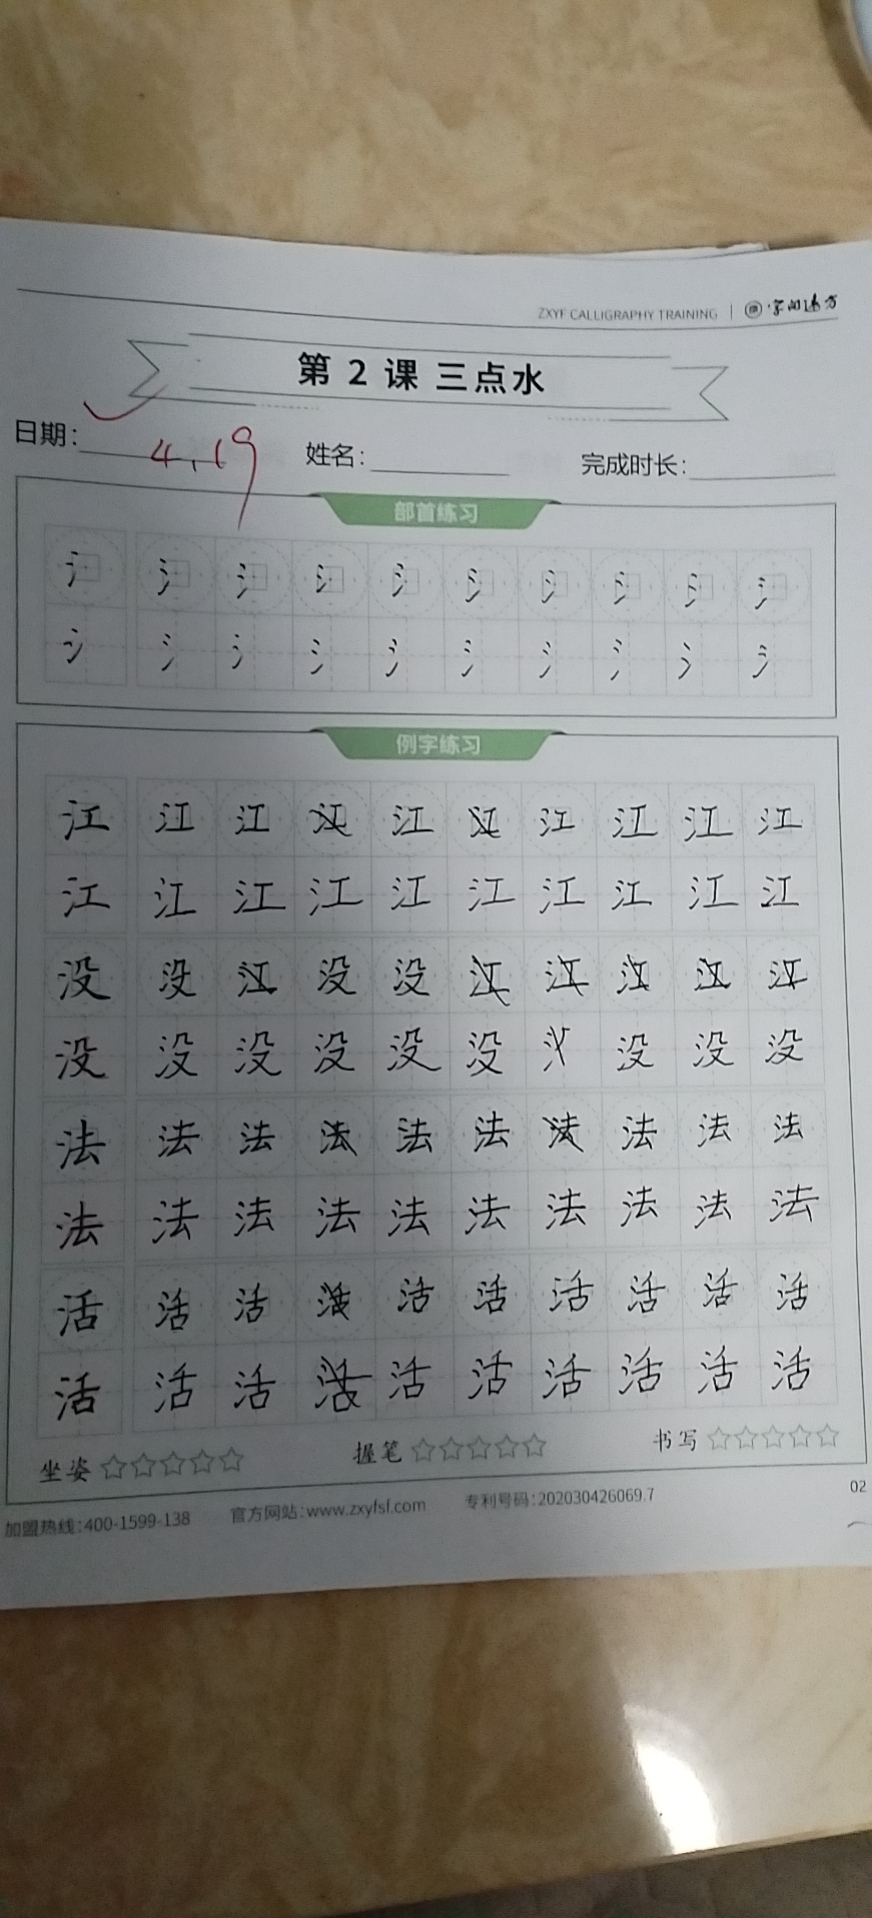 ZXYF CALLIGRAPHY TRAINING | 字间远方
第 2 课 三点水
日期: 4.19 姓名: 完成时长:
部首练习
氵 氵 氵 氵 氵 氵 氵 氵 氵 氵
氵 氵 氵 氵 氵 氵 氵 氵 氵 氵
例字练习
江 江 江 江 江 江 江 江 江
江 江 江 江 江 江 江 江 江 江
没 没 江 没 没 江 江 江 江 江
没 没 没 没 没 没 没 没 没
法 法 法 法 法 法 法 法 法 法
法 法 法 法 法 法 法 法 法 法
活 活 活 活 活 活 活 活 活
活 活 活 活 活 活 活 活 活 活
坐姿☆☆☆☆☆ 握笔☆☆☆☆☆ 书写☆☆☆☆☆
加盟热线:400-1599-138 官方网站:www.zxyfsf.com 专利号码:202030426069.7
02